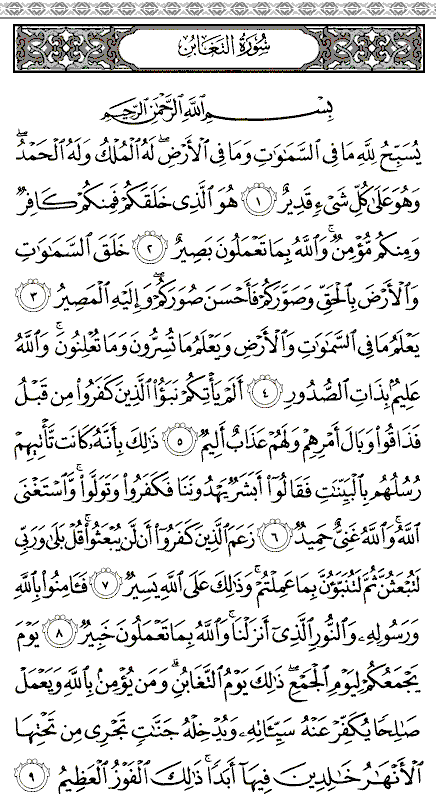 سُورَةُ التَّغَابُنِ
بِسْمِ اللَّهِ الرَّحْمَٰنِ الرَّحِيمِ
يُسَبِّحُ لِلَّهِ مَا فِي السَّمَٰوَٰتِ وَمَا فِي الْأَرْضِ ۖ لَهُ الْمُلْكُ وَلَهُ الْحَمْدُ ۖ
وَهُوَ عَلَىٰ كُلِّ شَيْءٍ قَدِيرٌ ١ هُوَ الَّذِي خَلَقَكُمْ فَمِنكُمْ كَافِرٌ
وَمِنكُم مُّؤْمِنٌ ۚ وَاللَّهُ بِمَا تَعْمَلُونَ بَصِيرٌ ٢ خَلَقَ السَّمَٰوَٰتِ
وَالْأَرْضَ بِالْحَقِّ وَصَوَّرَكُمْ فَأَحْسَنَ صُوَرَكُمْ ۖ وَإِلَيْهِ الْمَصِيرُ ٣
يَعْلَمُ مَا فِي السَّمَٰوَٰتِ وَالْأَرْضِ وَيَعْلَمُ مَا تُسِرُّونَ وَمَا تُعْلِنُونَ ۚ وَاللَّهُ
عَلِيمٌ بِذَاتِ الصُّدُورِ ٤ أَلَمْ يَأْتِكُمْ نَبَؤُا۟ الَّذِينَ كَفَرُوا۟ مِن قَبْلُ
فَذَاقُوا۟ وَبَالَ أَمْرِهِمْ وَلَهُمْ عَذَابٌ أَلِيمٌ ٥ ذَٰلِكَ بِأَنَّهُۥ كَانَت تَّأْتِيهِمْ
رُسُلُهُم بِالْبَيِّنَٰتِ فَقَالُوٓا۟ أَبَشَرٌ يَهْدُونَنَا فَكَفَرُوا۟ وَتَوَلَّوا۟ ۚ وَّاسْتَغْنَى
اللَّهُ ۚ وَاللَّهُ غَنِيٌّ حَمِيدٌ ٦ زَعَمَ الَّذِينَ كَفَرُوٓا۟ أَن لَّن يُبْعَثُوا۟ ۚ قُلْ بَلَىٰ وَرَبِّي
لَتُبْعَثُنَّ ثُمَّ لَتُنَبَّؤُنَّ بِمَا عَمِلْتُمْ ۚ وَذَٰلِكَ عَلَى اللَّهِ يَسِيرٌ ٧ فَـَٔامِنُوا۟ بِاللَّهِ
وَرَسُولِهِۦ وَالنُّورِ الَّذِيٓ أَنزَلْنَا ۚ وَاللَّهُ بِمَا تَعْمَلُونَ خَبِيرٌ ٨ يَوْمَ
يَجْمَعُكُمْ لِيَوْمِ الْجَمْعِ ۖ ذَٰلِكَ يَوْمُ التَّغَابُنِ ۗ وَمَن يُؤْمِنۢ بِاللَّهِ وَيَعْمَلْ
صَٰلِحًا يُكَفِّرْ عَنْهُ سَيِّـَٔاتِهِۦ وَيُدْخِلْهُ جَنَّٰتٍ تَجْرِي مِن تَحْتِهَا
الْأَنْهَٰرُ خَٰلِدِينَ فِيهَآ أَبَدًا ۚ ذَٰلِكَ الْفَوْزُ الْعَظِيمُ ٩